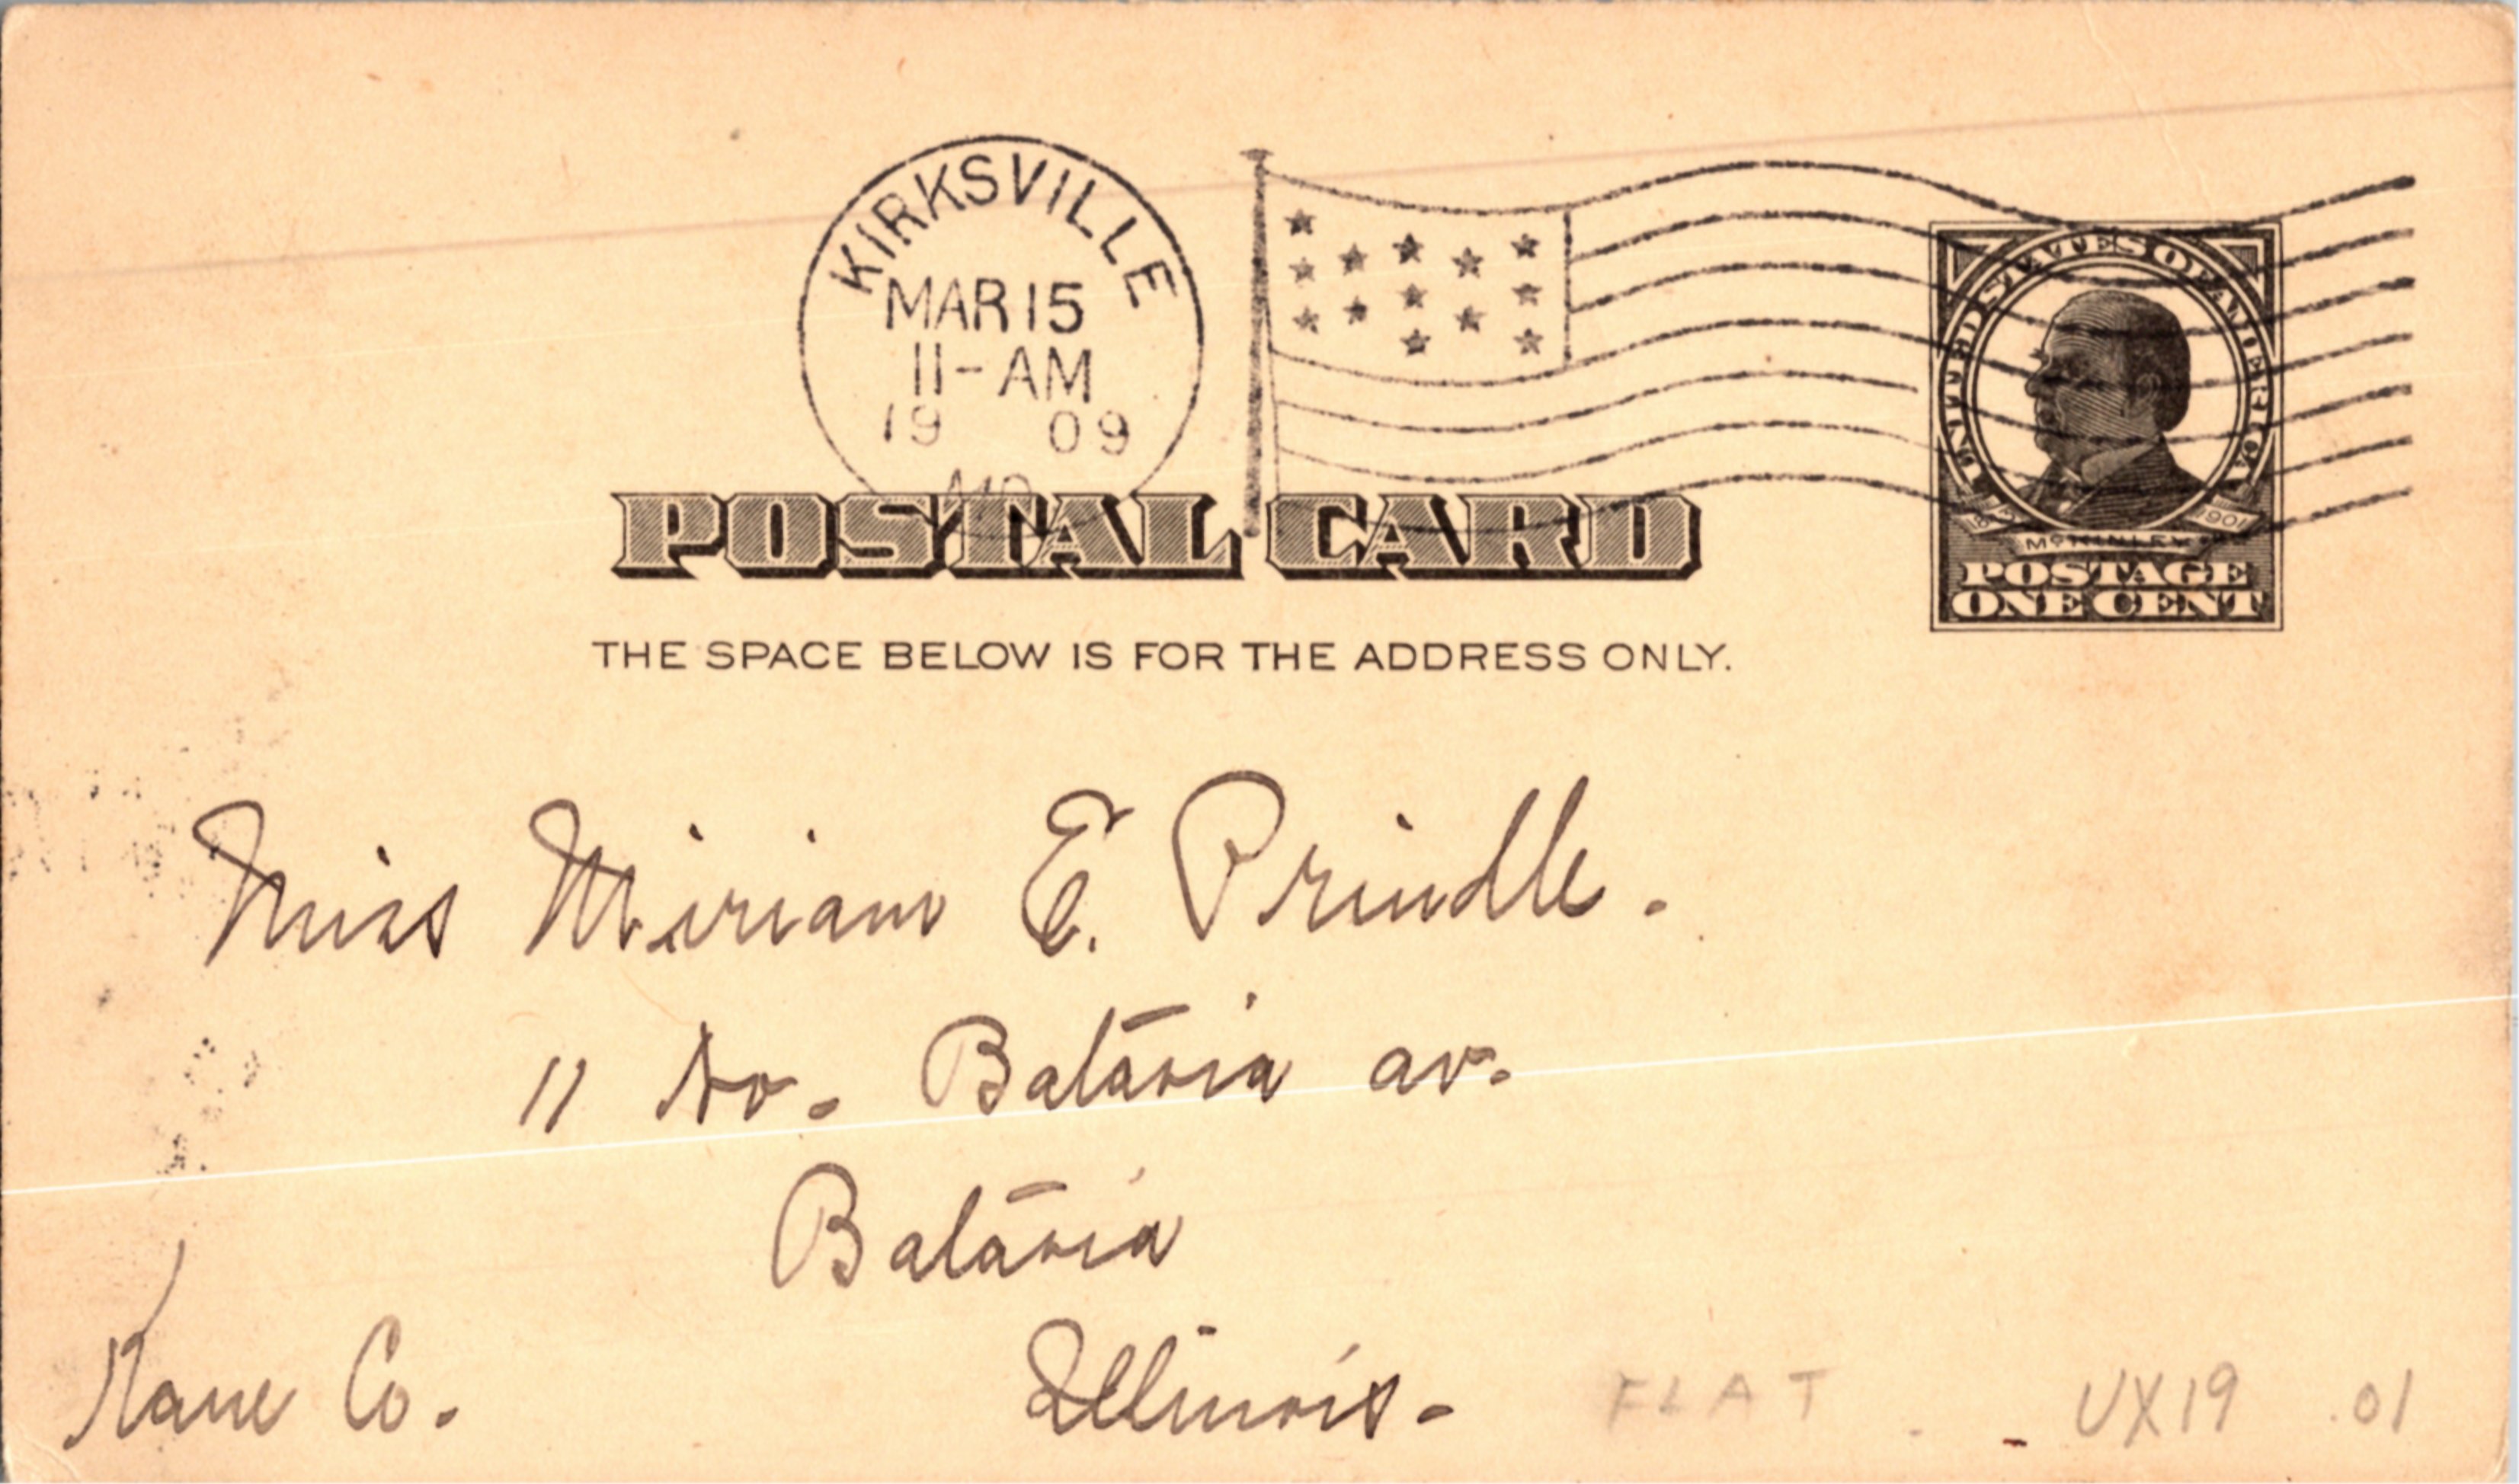 KIRKSVILLE
MAR 15
11-AM
19 09
MO.
UNITED STATES OF AMERICA
1843 1901
McKINLEY
POSTAGE
ONE CENT
POSTAL CARD
THE SPACE BELOW IS FOR THE ADDRESS ONLY.
Miss Miriam E. Prindle.
11 No. Batavia av.
Batavia
Kane Co. Illinois.
FLAT UX19 .01